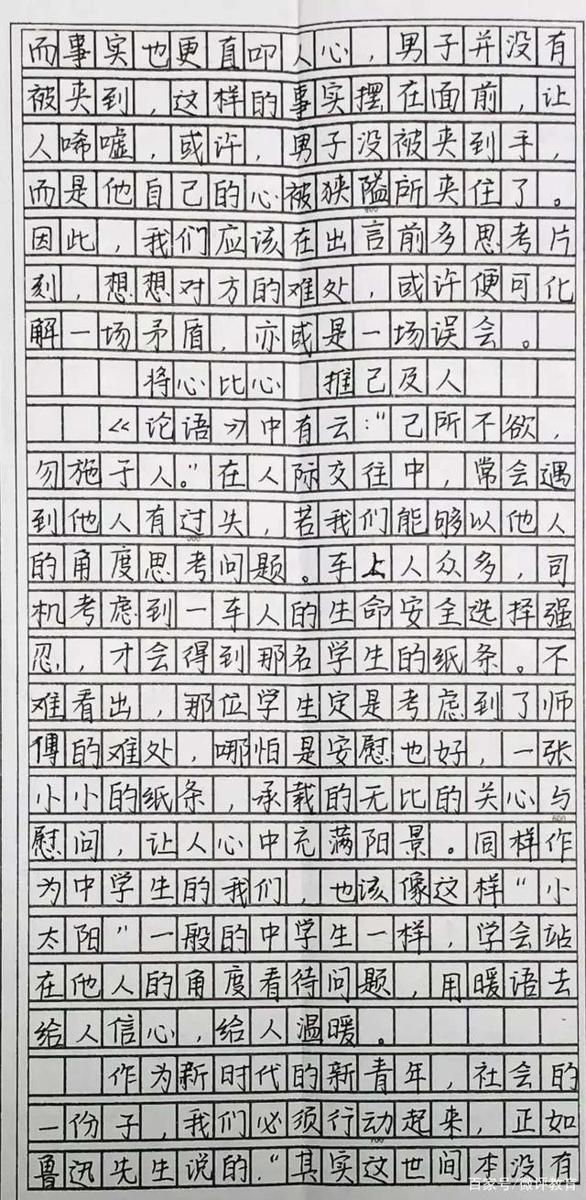 而事实也更直叩人心，男子并没有
被夹到，这样的事实摆在面前，让
人唏嘘，或许，男子没被夹到手，
而是他自己的心被狭隘所夹住了。
400
因此，我们应该在出言前多思考片
刻，想想对方的难处，或许便可化
解一场矛盾，亦或是一场误会。
将心比心 推己及人
《论语》中有云："己所不欲，
勿施于人。"在人际交往中，常会遇
到他人有过失，若我们能够以他人
500
的角度思考问题。车上人众多，司
机考虑到一车人的生命安全选择强
忍，才会得到那名学生的纸条。不
难看出，那位学生定是考虑到了师
傅的难处，哪怕是安慰也好，一张
小小的纸条，承载的无比的关心与
600
慰问，让人心中充满阳景。同样作
为中学生的我们，也该像这样"小
太阳"一般的中学生一样，学会站
在他人的角度看待问题，用暖语去
给人信心，给人温暖。
作为新时代的新青年，社会的
一份子，我们必须行动起来，正如
700
鲁迅先生说的."其实这世间本没有
百家号/微评教育